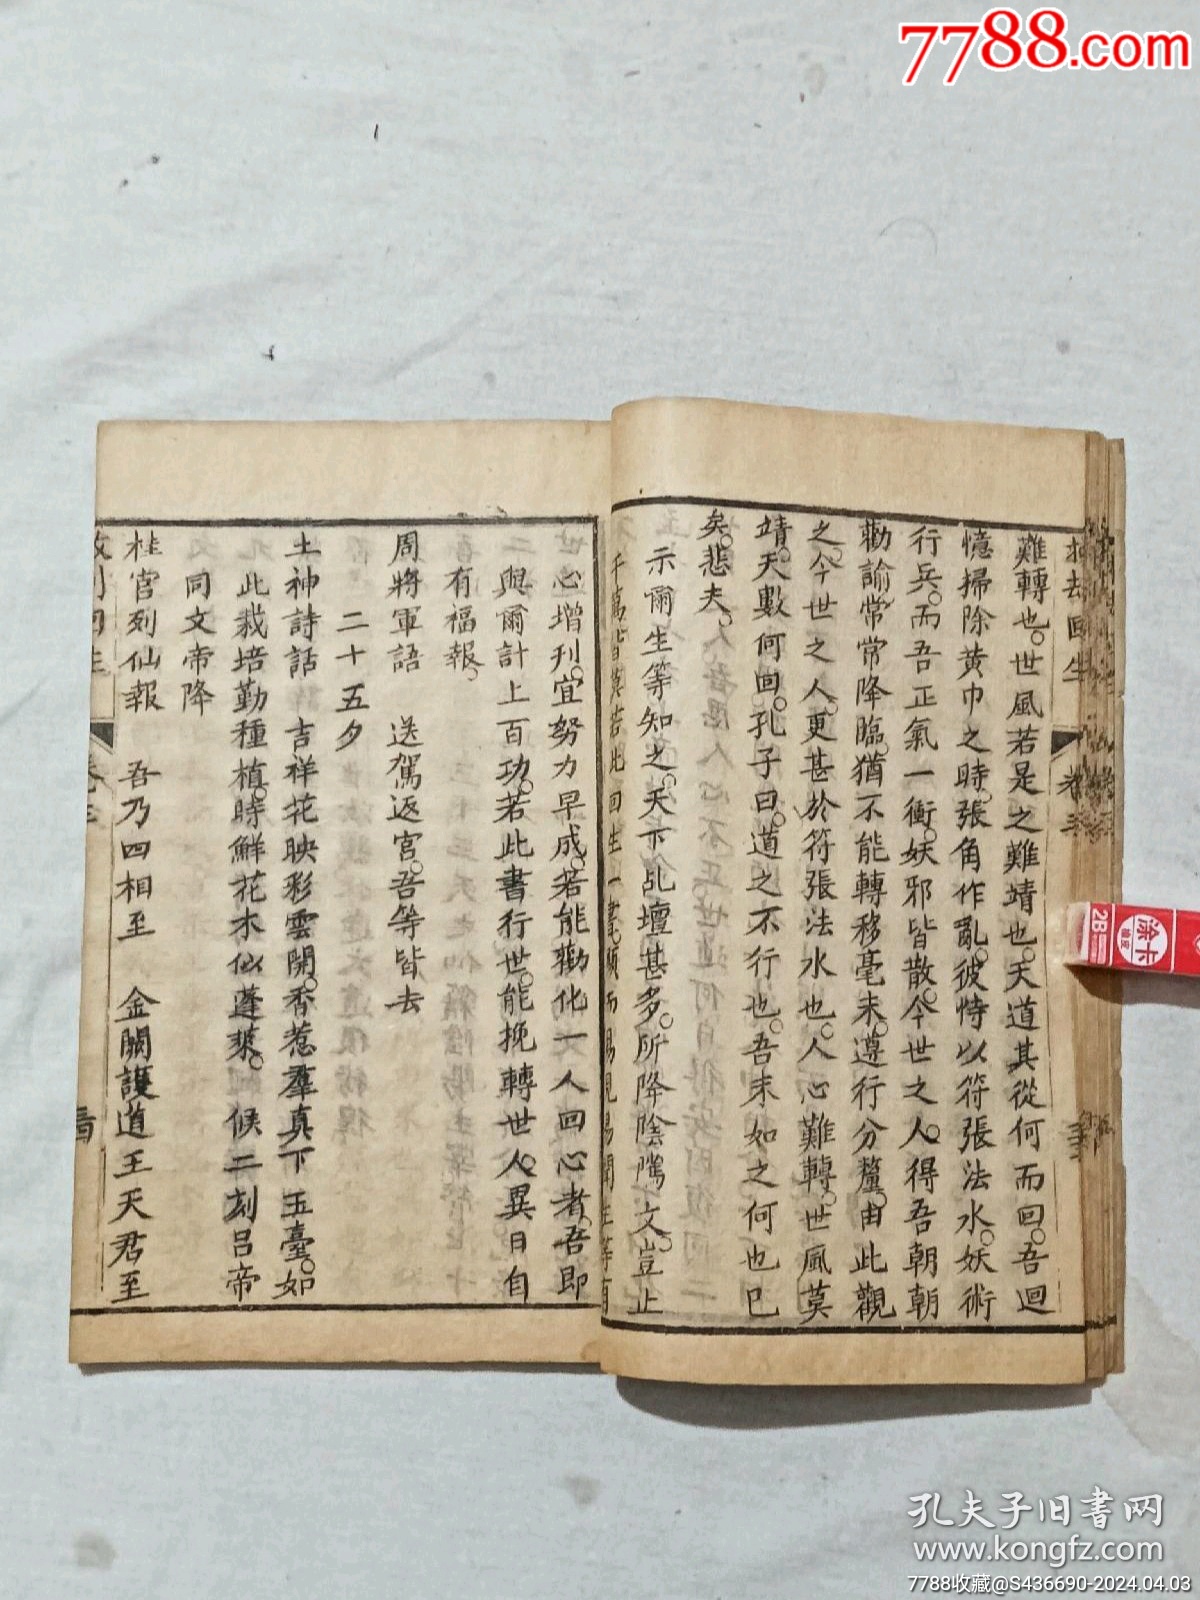 7788.com
難轉也。世風若是之難靖也。天道其從何而回。吾迴
憶掃除黃巾之時。張角作亂。彼恃以符張法水。妖術
行兵。而吾正氣一衝。妖邪皆散。今世之人。得吾朝朝
勸諭。常常降臨。猶不能轉移毫末。遵行分釐。由此觀
之。今世之人。更甚於符張法水也。人心難轉。世風莫
靖。天數何回。孔子曰。道之不行也。吾末如之何也已
矣。悲夫。
示爾生等知之。天下乩壇甚多。所降陰隲文。豈止
千萬。皆莫若此回生一書。
卷三
心增刊。宜努力早成。若能勸化一人回心者。吾即
與爾計上百功。若此書行世。能挽轉世人。異日自
有福報。
周將軍語 送駕返宮。吾等皆去
二十五夕
土神詩話 吉祥花映彩雲開。香惹羣真下玉臺。如
此栽培勤種植。時鮮花木似蓬萊。 候二刻呂帝
同文帝降
桂宮列仙報 吾乃四相至 金闕護道王天君至
2B
涂卡
橡皮
孔夫子旧书网
www.kongfz.com
7788收藏@S436690-2024.04.03